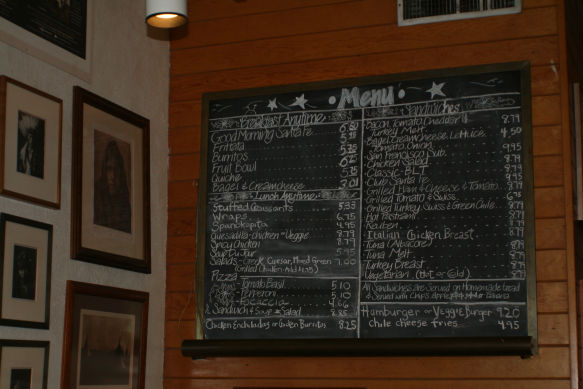 Menu
Breakfast Anytime
Good Morning Santa Fe 6.50
Frittata 5.25
Burritos
Fruit Bowl 6.25
Quiche
Bagel & Creamcheese 3.01
Lunch Anytime
Stuffed Croissants 5.35
Wraps 6.75
Spanakopita 4.95
Quesadilla-Chicken Veggie 8.79
Spicy Chicken 8.79
Soup Du Jour 5.95
Salads - Greek, Caesar, Mixed Green 7.00
Grilled Chicken Add
Pizza
Tomato Basil 5.10
Pepperoni 5.10
4.66
½ Sandwich & Soup or Salad 8.85
Chicken Enchiladas or Chicken Burritos 8.25
Sandwiches
Bacon Tomato Cheddar 8.79
Turkey Melt
Bagel Creamcheese Lettuce 4.50
Tomato Onion
San Francisco Sub 9.95
Chicken Salad 8.79
Classic BLT 8.79
Club Santa Fe 9.95
Grilled Ham & Cheese & Tomato 8.79
Grilled Tomato & Swiss 6.75
Grilled Turkey Swiss & Green Chile 8.79
Hot Pastrami 8.79
Reuben 8.79
Italian Chicken Breast 8.79
Tuna (Albacore) 8.79
Tuna Melt 8.79
Turkey Breast 8.79
Vegetarian (Hot or Cold) 8.79
All Sandwiches are Served on Homemade Bread
& Served with Chips
Hamburger or Veggie Burger 9.20
chile cheese fries 4.95